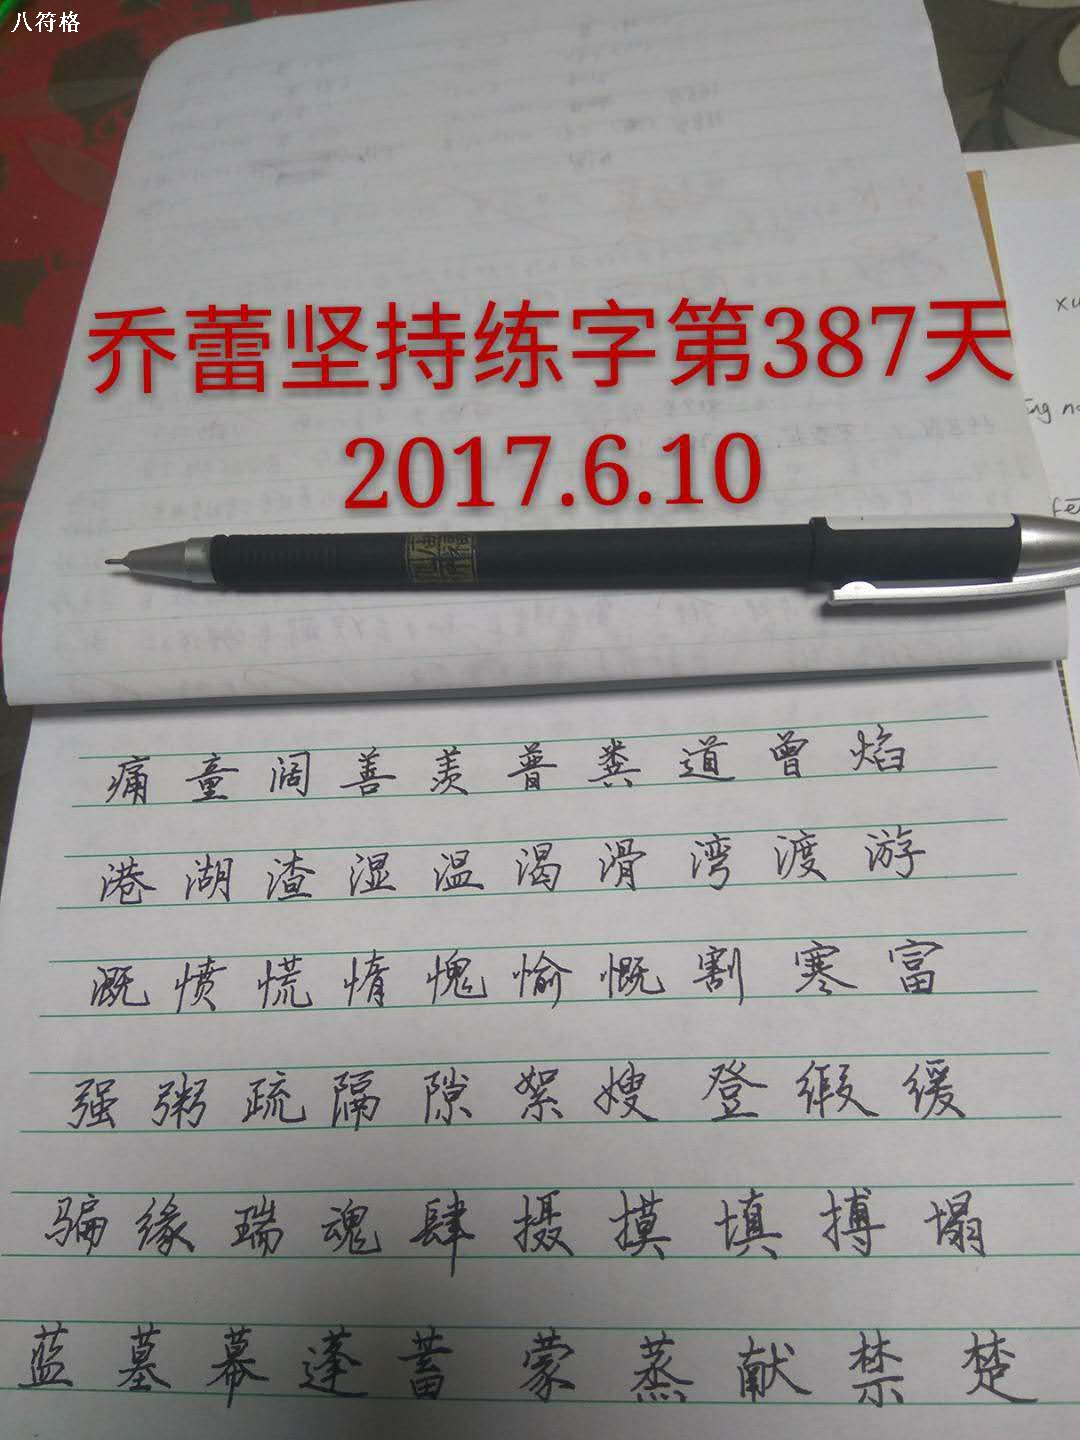 八符格
乔蕾坚持练字第387天
2017.6.10
痛 童 阔 善 羡 普 粪 道 曾 焰
港 湖 渣 湿 温 渴 滑 湾 渡 游
溉 愤 慌 惰 愧 愉 慨 割 寒 富
强 粥 疏 隔 隙 絮 嫂 登 缎 缓
骗 缘 瑞 魂 肆 摄 摸 填 搏 塌
蓝 墓 幕 蓬 蓄 蒙 蒸 献 禁 楚